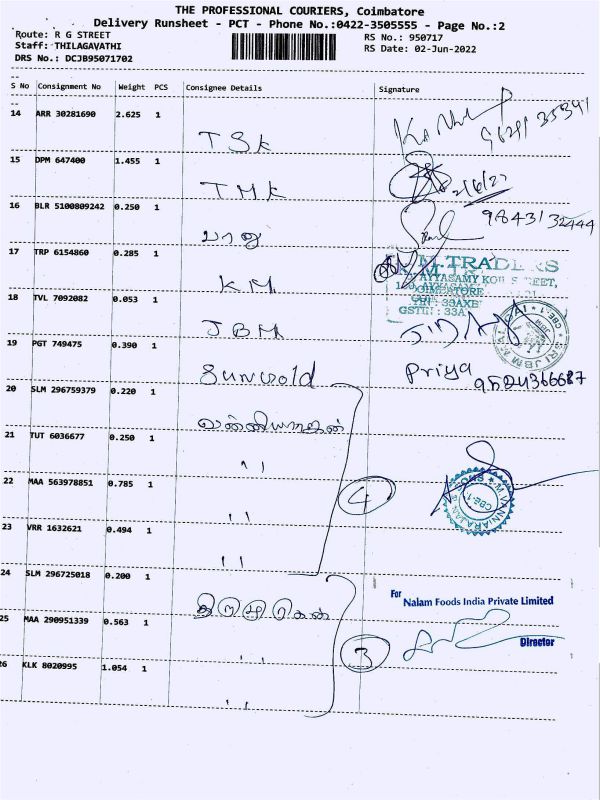 THE PROFESSIONAL COURIERS, Coimbatore
Delivery Runsheet - PCT - Phone No.:0422-3505555 - Page No.:2
Route: R G STREET
Staff: THILAGAVATHI
DRS No.: DCJB95071702
RS No.: 950717
RS Date: 02-Jun-2022
S No Consignment No Weight PCS Consignee Details Signature
14 ARR 30281690 2.625 1 TSK
15 DPM 647400 1.455 1 TMK 2/6/22
16 BLR 5100809242 0.250 1 பாலு 9843132444
17 TRP 6154860 0.285 1 KM
M.TRADERS
18 TVL 7092082 0.053 1 JBM
GSTIN: 33A
19 PGT 749475 0.390 1 Sungold Priya
20 SLM 296759379 0.220 1
21 TUT 6036677 0.250 1 "
22 MAA 563978851 0.785 1 " 4
23 VRR 1632621 0.494 1 "
24 SLM 296725018 0.200 1
For Nalam Foods India Private Limited
25 MAA 290951339 0.563 1 " 3
Director
26 KLK 8020995 1.054 1 "